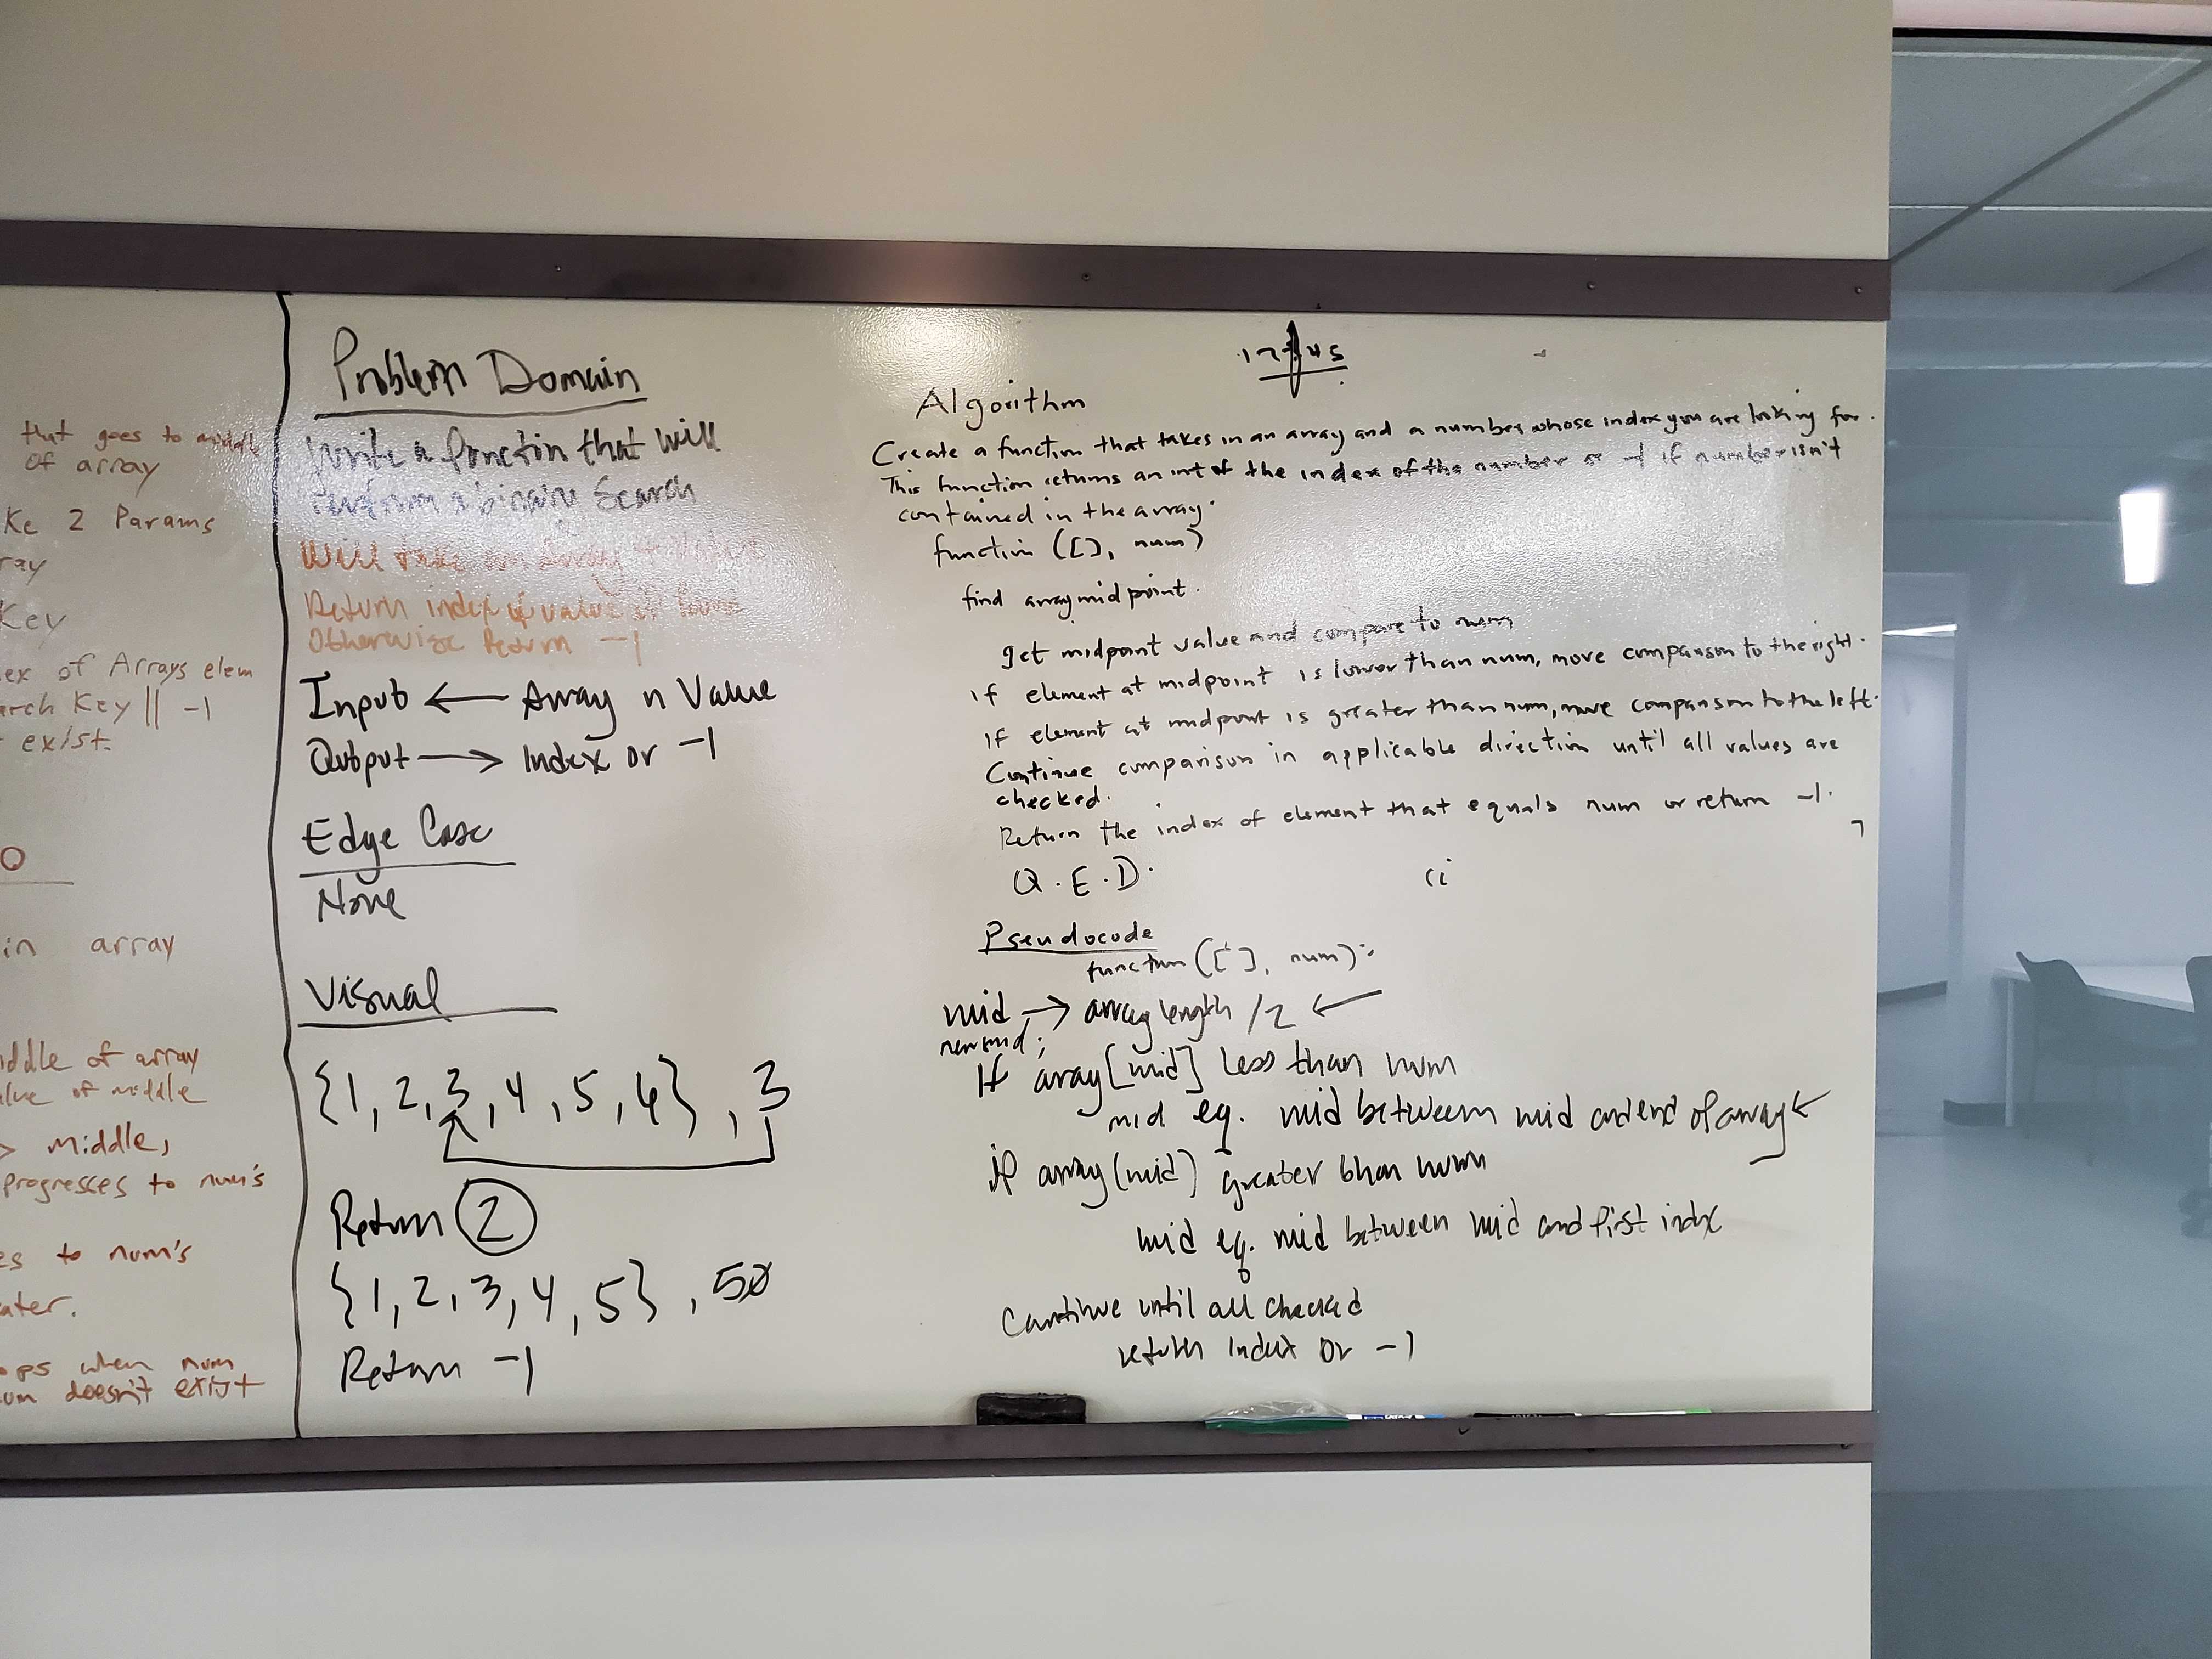 that goes to middle
of array
Ke 2 Params
ray
Key
ex of Arrays elem
arch Key || -1
exist.
in array
iddle of array
alue of middle
> middle,
progresses to num's
es to num's
ater.
ops when num
um doesn't exist
Problem Domain
Write a function that will
Perform a binary Search
Will take an Array + Value
Return index of value if found
Otherwise Return -1
Input ← Array n Value
Output → Index or -1
Edge Case
None
Visual
{1, 2, 3, 4, 5, 6}, 3
Return 2
{1, 2, 3, 4, 5}, 50
Return -1
Algorithm
Create a function that takes in an array and a number whose index you are looking for.
This function returns an int of the index of the number or -1 if number isn't
contained in the array.
function ([], num)
find array midpoint.
get midpoint value and compare to num
if element at midpoint is lower than num, move comparison to the right.
if element at midpoint is greater than num, move comparison to the left.
Continue comparison in applicable direction until all values are
checked.
Return the index of element that equals num or return -1.
Q.E.D.
(i
Pseudocode
function ([], num):
mid → array length / 2 ←
new mid;
If array[mid] less than num
mid eq. mid between mid and end of array ←
if array(mid) greater than num
mid eq. mid between mid and first index
Continue until all checked
return index or -1